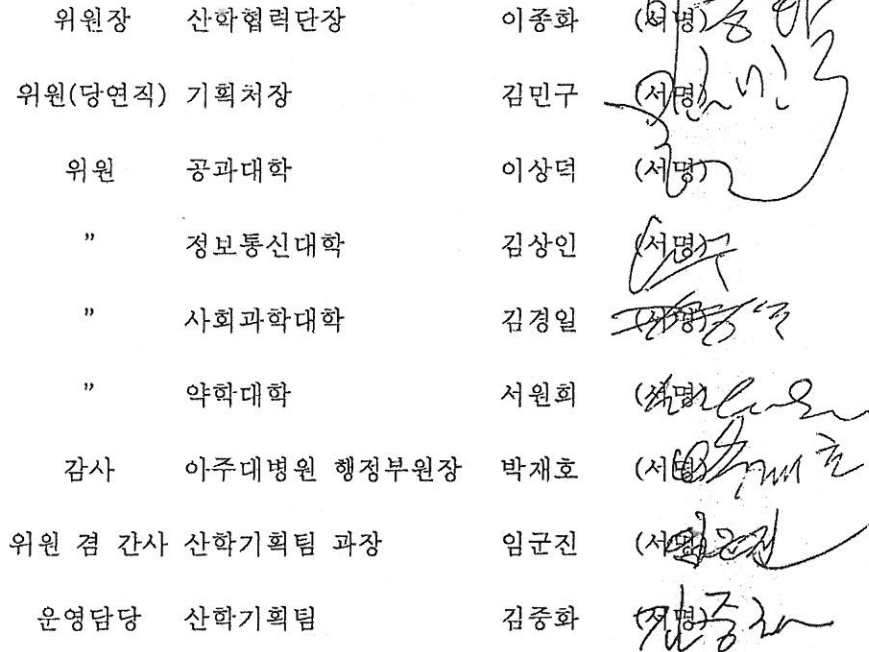 위원장 산학협력단장 이종화 (서명)
위원(당연직) 기획처장 김민구 (서명)
위원 공과대학 이상덕 (서명)
" 정보통신대학 김상인 (서명)
" 사회과학대학 김경일 (서명)
" 약학대학 서원희 (서명)
감사 아주대병원 행정부원장 박재호 (서명)
위원 겸 간사 산학기획팀 과장 임군진 (서명)
운영담당 산학기획팀 김중화 (서명)